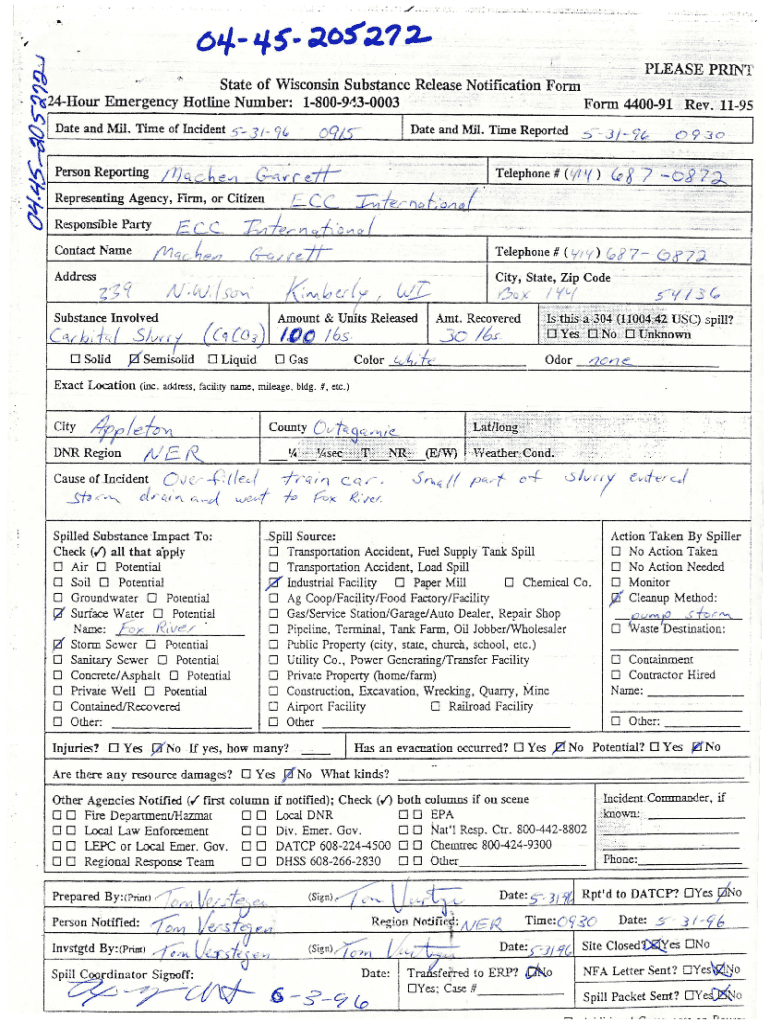 04-45-205272
04-45-205272
PLEASE PRINT
State of Wisconsin Substance Release Notification Form
24-Hour Emergency Hotline Number: 1-800-943-0003 Form 4400-91 Rev. 11-95
Date and Mil. Time of Incident 5-31-96 0915 Date and Mil. Time Reported 5-31-96 0930
Person Reporting Machen Garrett Telephone # (414) 687-0872
Representing Agency, Firm, or Citizen ECC International
Responsible Party ECC International
Contact Name Machen Garrett Telephone # (414) 687-0872
Address City, State, Zip Code
339 N. Wilson Kimberly, WI Box 144 54136
Substance Involved Amount & Units Released Amt. Recovered Is this a 304 (11004.42 USC) spill?
Carbital Slurry (CaCO3) 100 lbs. 30 lbs. ☐ Yes ☐ No ☐ Unknown
☐ Solid ☑ Semisolid ☐ Liquid ☐ Gas Color white Odor none
Exact Location (inc. address, facility name, mileage, bldg. #, etc.)
City Appleton County Outagamie Lat/long
DNR Region NER ___¼ ___¼sec ___T ___NR ___(E/W) Weather Cond.
Cause of Incident Over-filled train car. Small part of slurry entered
storm drain and went to Fox River.
Spilled Substance Impact To: Spill Source: Action Taken By Spiller
Check (✓) all that apply ☐ Transportation Accident, Fuel Supply Tank Spill ☐ No Action Taken
☐ Air ☐ Potential ☐ Transportation Accident, Load Spill ☐ No Action Needed
☐ Soil ☐ Potential ☑ Industrial Facility ☐ Paper Mill ☐ Chemical Co. ☐ Monitor
☐ Groundwater ☐ Potential ☐ Ag Coop/Facility/Food Factory/Facility ☑ Cleanup Method:
☑ Surface Water ☐ Potential ☐ Gas/Service Station/Garage/Auto Dealer, Repair Shop pump storm
Name: Fox River ☐ Pipeline, Terminal, Tank Farm, Oil Jobber/Wholesaler ☐ Waste Destination:
☑ Storm Sewer ☐ Potential ☐ Public Property (city, state, church, school, etc.)
☐ Sanitary Sewer ☐ Potential ☐ Utility Co., Power Generating/Transfer Facility ☐ Containment
☐ Concrete/Asphalt ☐ Potential ☐ Private Property (home/farm) ☐ Contractor Hired
☐ Private Well ☐ Potential ☐ Construction, Excavation, Wrecking, Quarry, Mine Name:
☐ Contained/Recovered ☐ Airport Facility ☐ Railroad Facility
☐ Other: ☐ Other ☐ Other:
Injuries? ☐ Yes ☑ No If yes, how many? Has an evacuation occurred? ☐ Yes ☑ No Potential? ☐ Yes ☑ No
Are there any resource damages? ☐ Yes ☑ No What kinds?
Other Agencies Notified (✓ first column if notified); Check (✓) both columns if on scene Incident Commander, if
☐ ☐ Fire Department/Hazmat ☐ ☐ Local DNR ☐ ☐ EPA known:
☐ ☐ Local Law Enforcement ☐ ☐ Div. Emer. Gov. ☐ ☐ Nat'l Resp. Ctr. 800-442-8802
☐ ☐ LEPC or Local Emer. Gov. ☐ ☐ DATCP 608-224-4500 ☐ ☐ Chemtrec 800-424-9300
☐ ☐ Regional Response Team ☐ ☐ DHSS 608-266-2830 ☐ ☐ Other Phone:
Prepared By:(Print) Tom Verstegen (Sign) Tom Date: 5-31-96 Rpt'd to DATCP? ☐Yes ☑No
Person Notified: Tom Verstegen Region Notified: NER Time: 0930 Date: 5-31-96
Invstgtd By:(Print) Tom Verstegen (Sign) Tom Date: 5-31-96 Site Closed? ☑Yes ☐No
Spill Coordinator Signoff: Date: Transferred to ERP? ☑No NFA Letter Sent? ☐Yes ☑No
6-3-96 ☐Yes; Case # Spill Packet Sent? ☐Yes ☑No